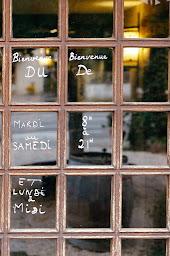 Bienvenue Bienvenue
Du De
MARDI 8H
au à
SAMEDI 21H
ET
LUNDI
à
MIDI